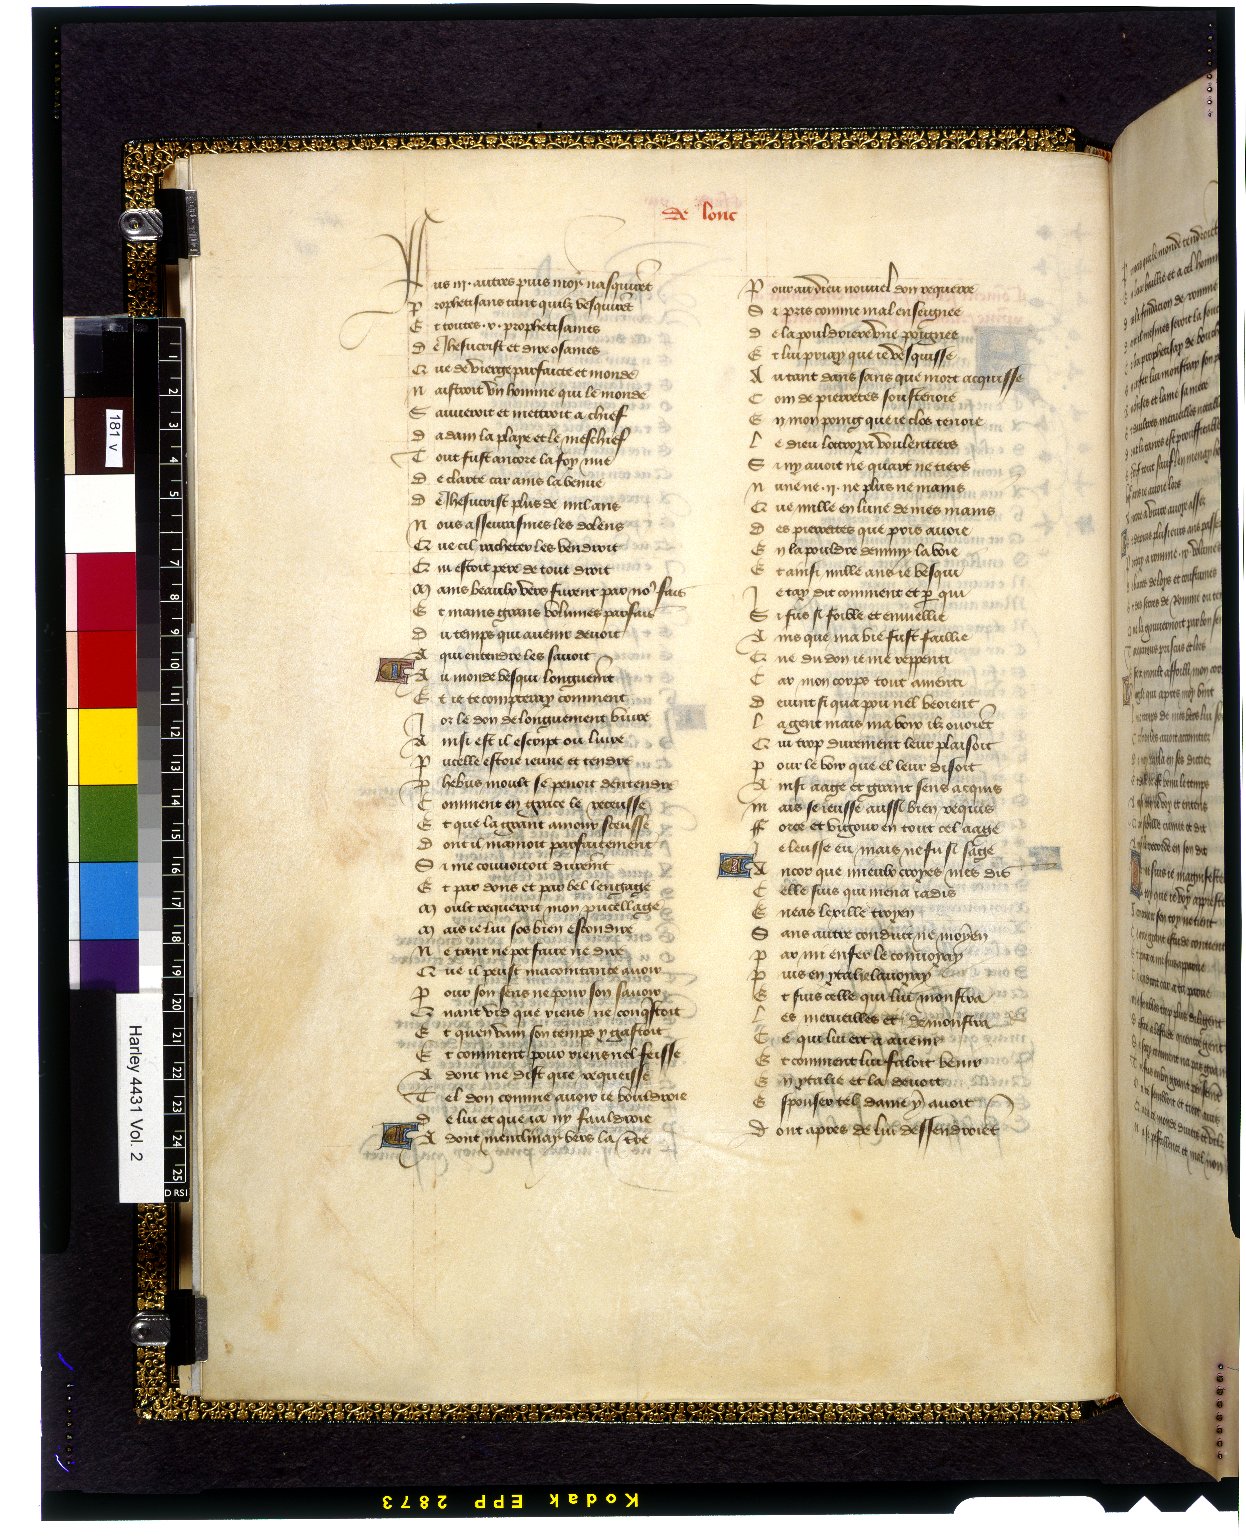 de lonc
Aus .iii. autres puis moy nasquiret
Prophetisans tant quilz vesquiret
Et toutes .x. prophetisames
De Jhesucrist et dire osames
Que de vierge parfaicte et monde
Naistroit vn homme qui le monde
Sauueroit et mettroit a chief
Dadam la playe et le meschief
Tout fust ancore la foy nue
De clarte car ains la venue
De Jhesucrist plus de mil ans
Nous asseurasmes les dolens
Que cil racheter les vendroit
Qui estoit pere de tout droit
Mains beaulx vers furent par noꝰ fais
Et mains grans volumes parfais
Du temps qui auenir deuoit
A qui entendre les sauoit
Au monde vesqui longuemt
Et ie te compteray comment
Jor le don de longuement viure
Ainsi est il escript ou liure
Pucelle estoie ieune et tendre
Phebus moult se penoit dentendre
Comment en grace le receusse
Et que la grant amour sceusse
Dont il mamoit parfaitement
Si me couuoitoit durement
Et par dons et par bel lengage
Moult requeroit mon pucellage
Mais ie lui sos bien escondire
Ne tant ne pot faire ne dire
Que il peust macointance auoir
Pour son sens ne pour son sauoir
Quant vid que riens ne conqstoit
Et quen vain son temps y gastoit
Et comment pour riens nel feisse
Adont me dist que requeisse
Tel don comme auoir ie vouldroie
De lui et que ia ny fauldroie
Adont menclinay vers la tre
Pour au dieu nouuel don requerre
Si pris comme mal enseignee
De la pouldriere vne poignee
Et lui priay que ie vesquisse
Autant dans sans que mort acquisse
Com de pierretes soustenoie
En mon poing que ie clos tenoie
Le dieu lottroya voulentiers
Si ny auoit ne quart ne tiers
Nune ne .ii. ne plus ne mains
Que mille en lune de mes mains
Des pierrettes que pris auoie
En la pouldre denmy la voie
Et ainsi mille ans ie vesqui
Je tay dit comment et p qui
Si fus si foible et enuellie
Ains que ma vie fust faillie
Que du don ie me reppenti
Car mon corps tout amenri
Deuint si qua pou nel veoient
La gent mais ma voix ilz ouoiet
Qui trop durement leur plaisoit
Pour le voir que el leur disoit
Ainsi aage et grant sens acquis
Mais se ieusse aussi bien requis
Force et vigour en tout cel aage
Je leusse eu, mais ne fu si sage
Ancor que mieulx croyes mes dis
Celle suis qui mena iadis
Eneas lexille troyen
Sans autre conduit ne moyen
Par mi enfer le conuoyay
Puis en ytalie lauoyay
Et suis celle qui lui monstra
Les merueilles et demonstra
Ce qui lui ert a auenir
Et comment lui faloit venir
En ytalie et la deuoit
Espouser tel dame y auoit
Dont apres de lui dessendroient
181 v
Harley 4431 Vol. 2
Kodak EPP 2873